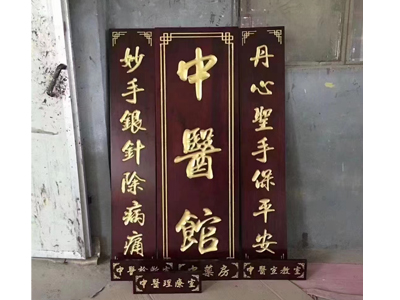 妙手銀針除病痛
中醫館
丹心聖手保平安
中醫
藥房
中醫宣教室
中醫理療室